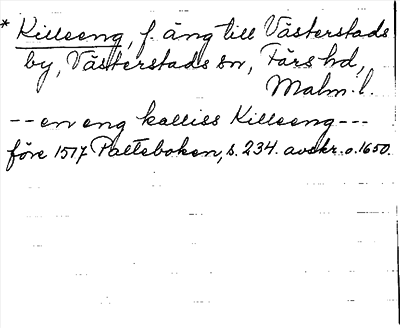 * Killeeng, f. äng till Västerstads
by, Västerstads sn, Färs hd,
Malm. l.
-- en eng kalliss Killeeng ---
före 1517 Palteboken, s. 234. avskr. o. 1650.